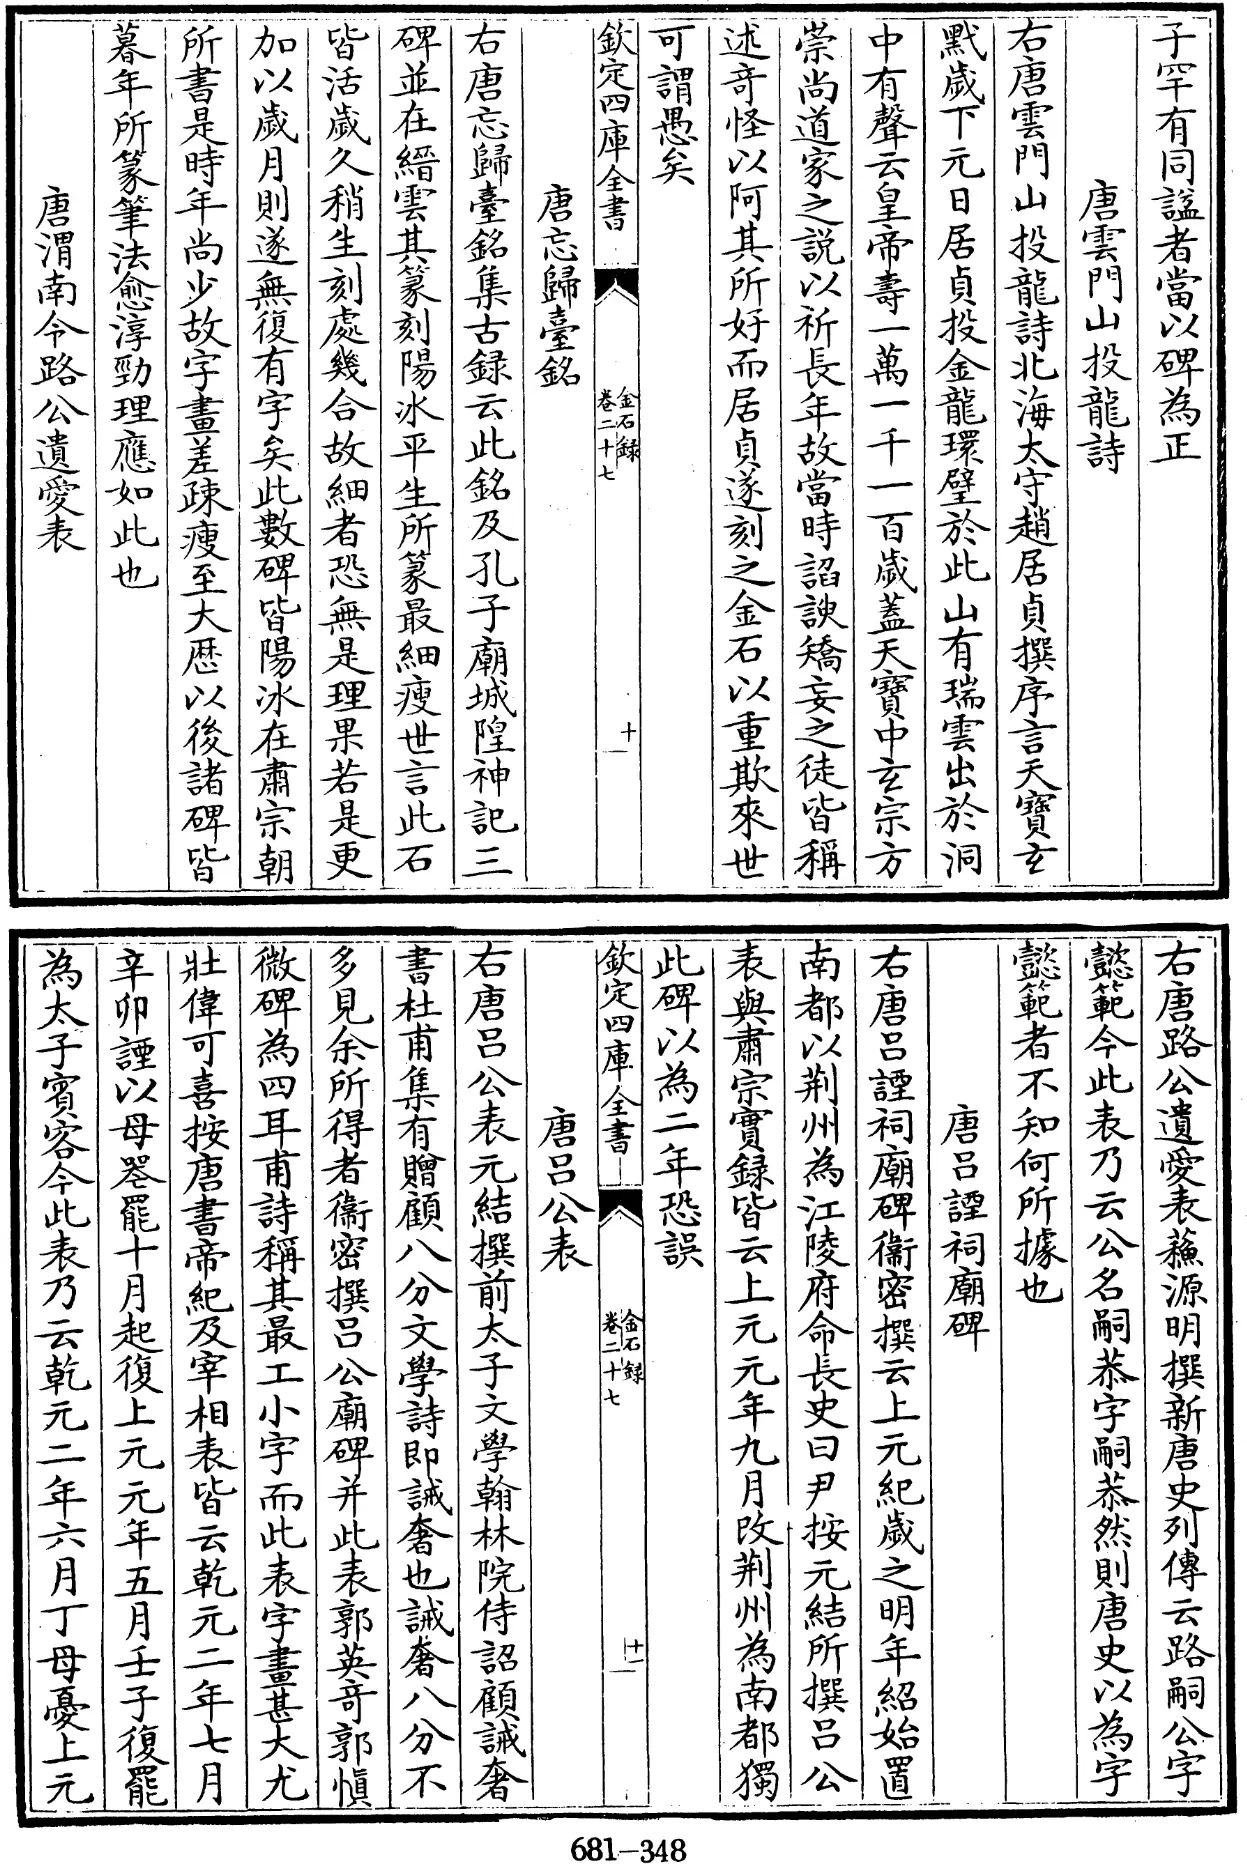 子罕有同諡者當以碑為正
唐雲門山投龍詩
右唐雲門山投龍詩北海太守趙居貞撰序言天寶玄
黓歲下元日居貞投金龍環璧於此山有瑞雲出於洞
中有聲云皇帝壽一萬一千一百歲蓋天寶中玄宗方
崇尚道家之説以祈長年故當時諂諛矯妄之徒皆稱
述竒怪以阿其所好而居貞遂刻之金石以重欺來世
可謂愚矣
欽定四庫全書
金石録
卷二十七
十
唐忘歸臺銘
右唐忘歸臺銘集古録云此銘及孔子廟城隍神記三
碑並在縉雲其篆刻陽冰平生所篆最細瘦世言此石
皆活歲久稍生刻處幾合故細者恐無是理果若是更
加以歲月則遂無復有字矣此數碑皆陽冰在肅宗朝
所書是時年尚少故字畫差疎瘦至大厯以後諸碑皆
暮年所篆筆法愈淳勁理應如此也
唐渭南令路公遺愛表
右唐路公遺愛表蘓源明撰新唐史列傳云路嗣公字
懿範今此表乃云公名嗣恭字嗣恭然則唐史以為字
懿範者不知何所據也
唐吕諲祠廟碑
右唐吕諲祠廟碑衞密撰云上元紀歲之明年紹始置
南都以荆州為江陵府命長史曰尹按元結所撰吕公
表與肅宗實録皆云上元元年九月改荆州為南都獨
此碑以為二年恐誤
欽定四庫全書
金石録
卷二十七
十一
唐吕公表
右唐吕公表元結撰前太子文學翰林院侍詔顧誡奢
書杜甫集有贈顧八分文學詩即誡奢也誡奢八分不
多見余所得者衞密撰吕公廟碑并此表郭英竒郭慎
微碑為四耳甫詩稱其最工小字而此表字畫甚大尤
壯偉可喜按唐書帝紀及宰相表皆云乾元二年七月
辛卯諲以母喪罷十月起復上元元年五月壬子復罷
為太子賓客今此表乃云乾元二年六月丁母憂上元
681-348